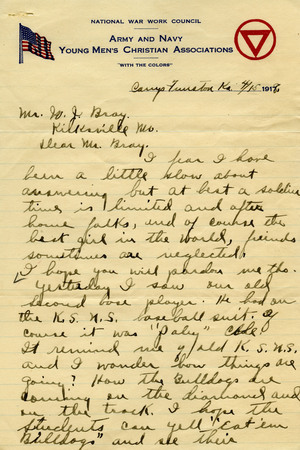 NATIONAL WAR WORK COUNCIL
ARMY AND NAVY
YOUNG MEN'S CHRISTIAN ASSOCIATIONS
"WITH THE COLORS"
Camp Funston Ka 4/15 191
Mr. W. J. Bray.
Kirksville Mo.
Dear Mr. Bray.
I fear I have
been a little slow about
answering but at best a soldiers
time is limited and after
home folks, and of course the
best girl in the world, friends
sometimes are neglected.
I hope you will pardon me tho.
Yesterday I saw our old
second base player. He had on
the K.S.N.S. baseball suit. Of
course it was "Paley" Cole.
It remind me of old K.S.N.S.
and I wonder how things are
going? How the Bulldogs are
coming on the diamond and
on the track. I hope the
students can yell "eat'em
Bulldogs" and see their